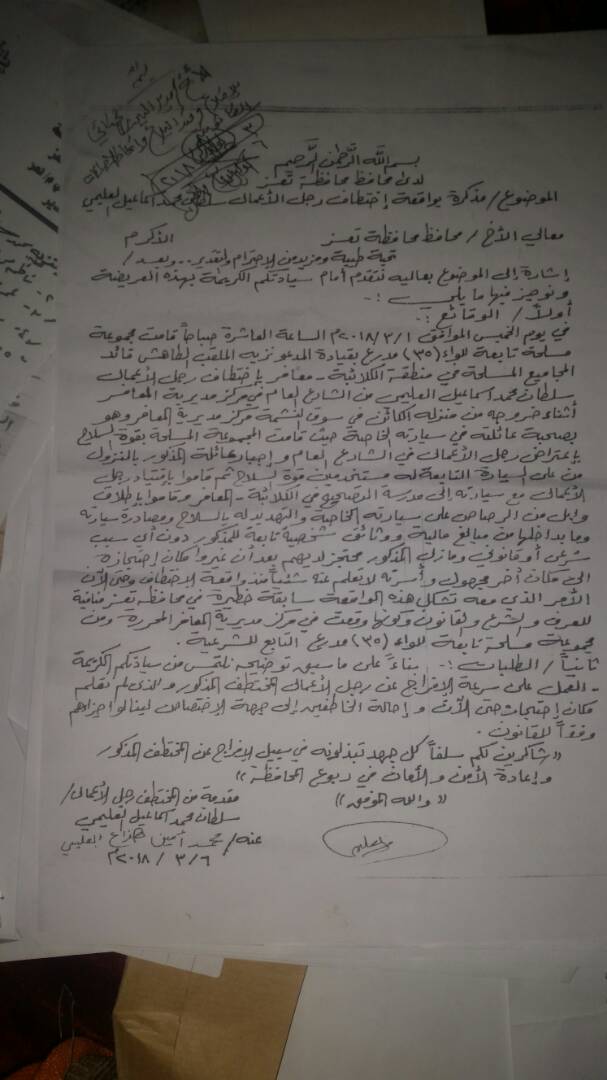 بسم الله الرحمن الرحيم
لدى محافظ محافظة تعز
الموضوع / مذكرة بواقعة إختطاف رجل الأعمال سلطان محمد اسماعيل العليمي
معالي الأخ / محافظ محافظة تعز الأكرم
تحية طيبة ومزيد من الإحترام والتقدير .. وبعد /
إشارة إلى الموضوع بعاليه نتقدم أمام سيادتكم الكريمة بهذه العريضة
ونوجز فيها ما يلي :-
أولاً / الوقائع :-
في يوم الخميس الموافق ٢٠١٨/٣/١م الساعة العاشرة صباحاً قامت مجموعة
مسلحة تابعة للواء (٣٥) مدرع بقيادة المدعو نزيه الملقب الطاهش قائد
المجاميع المسلحة في منطقة الكلائبة - معافر بإختطاف رجل الأعمال
سلطان محمد اسماعيل العليمي من الشارع العام في مركز مديرية المعافر
أثناء خروجه من منزله الكائن في سوق النشمة مركز مديرية المعافر وهو
بصحبة عائلته في سيارته الخاصة حيث قامت المجموعة المسلحة بقوة السلاح
بإعتراض رجل الأعمال في الشارع العام وإجبار عائلة المذكور بالنزول
من على السيارة التابعة له مستخدمين قوة السلاح ثم قاموا بإقتياد رجل
الأعمال مع سيارته إلى مدرسة في الكلائبة - المعافر وقاموا بإطلاق
وابل من الرصاص على سيارته الخاصة والتهديد له بالسلاح ومصادرة سيارته
وما بداخلها من مبالغ مالية ووثائق شخصية تابعة للمذكور دون أي سبب
شرعي أو قانوني ومازال المذكور محتجز لديهم بعد أن غيروا مكان إحتجازه
الى مكان آخر مجهول وأسرته لا تعلم عنه شئياً منذ واقعة الإختطاف وحتى الآن
الأمر الذي معه تشكل هذه الواقعة سابقة خطيرة في محافظة تعز منافية
للعرف والشرع والقانون وكونها وقعت في مركز مديرية المعافر المحررة ومن
مجموعة مسلحة تابعة للواء (٣٥) مدرع التابع للشرعية .
ثانياً / الطلبات :- بناءً على ما سبق توضيحه نلتمس من سيادتكم الكريمة
- العمل على سرعة الإفراج عن رجل الأعمال المختطف المذكور والذي لم نعلم
مكان إحتجازه حتى الآن وإحالة الخاطفين إلى جهة الإختصاص لينالوا جزاءهم
وفقاً للقانون .
« شاكرين لكم سلفاً كل جهد تبذلونه في سبيل الإفراج عن المختطف المذكور
وإعادة الأمن والأمان في ربوع المحافظة »
« والله الموفق » مقدمة من المختطف رجل الأعمال /
سلطان محمد اسماعيل العليمي
عنه / محمد أمين هزاع العليمي
٢٠١٨ / ٣ / ٦م